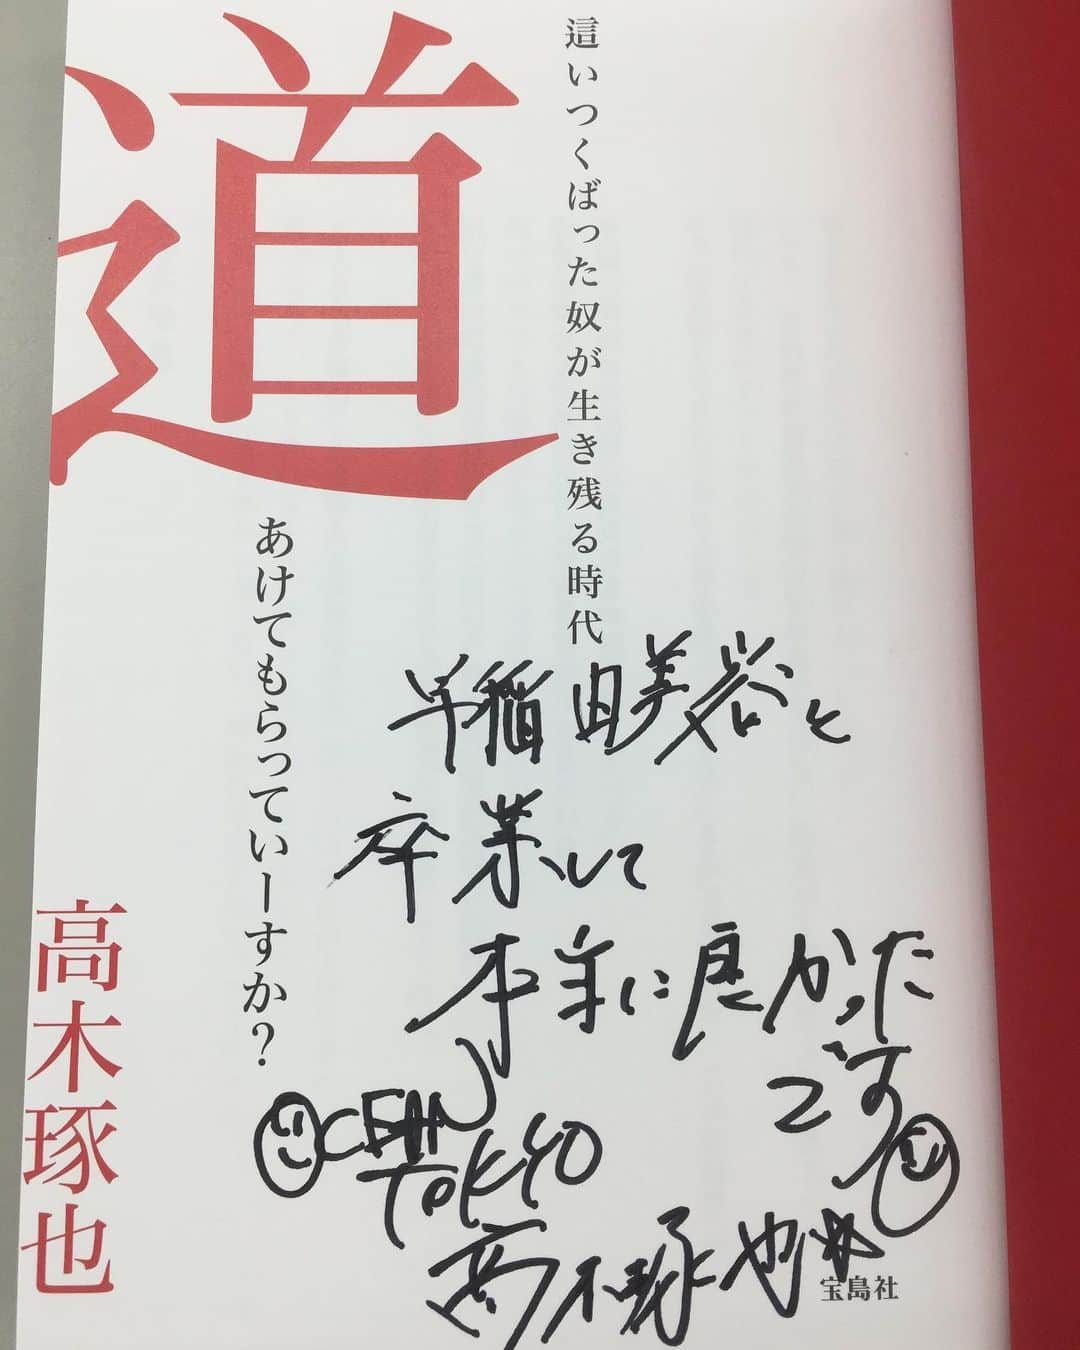 這いつくばった奴が生き残る時代
道
あけてもらっていーすか?
高木琢也
早稲田美容と
卒業して
本当に良かった
です
OCEAN
TOKYO
高木琢也
宝島社